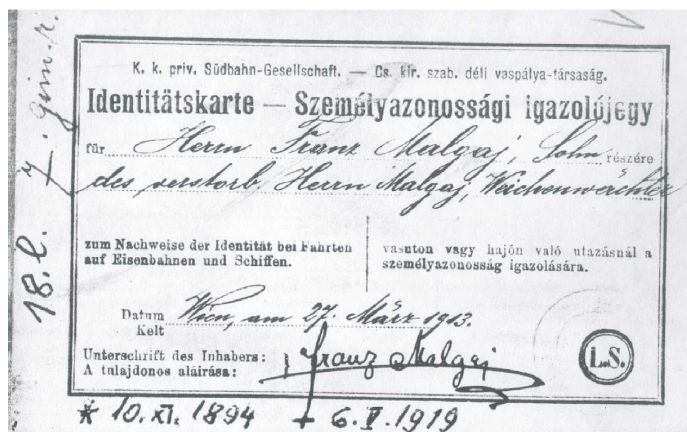 K. k. priv. Südbahn-Gesellschaft. — Cs. kir. szab. déli vaspálya-társaság.
Identitätskarte — Személyazonossági igazolójegy
für Herrn Franz Malgaj, Sohn részére
des verstorb. Herrn Malgaj, Weichenwächter
zum Nachweise der Identität bei Fahrten
auf Eisenbahnen und Schiffen.
vasuton vagy hajón való utazásnál a
személyazonosság igazolására.
Datum Wien, am 27. März 1913.
Kelt
Unterschrift des Inhabers: Franz Malgaj
A tulajdonos aláirása:
L.S.
* 10. XI. 1894 + 6. V. 1919
18. l. 7. gim. r.